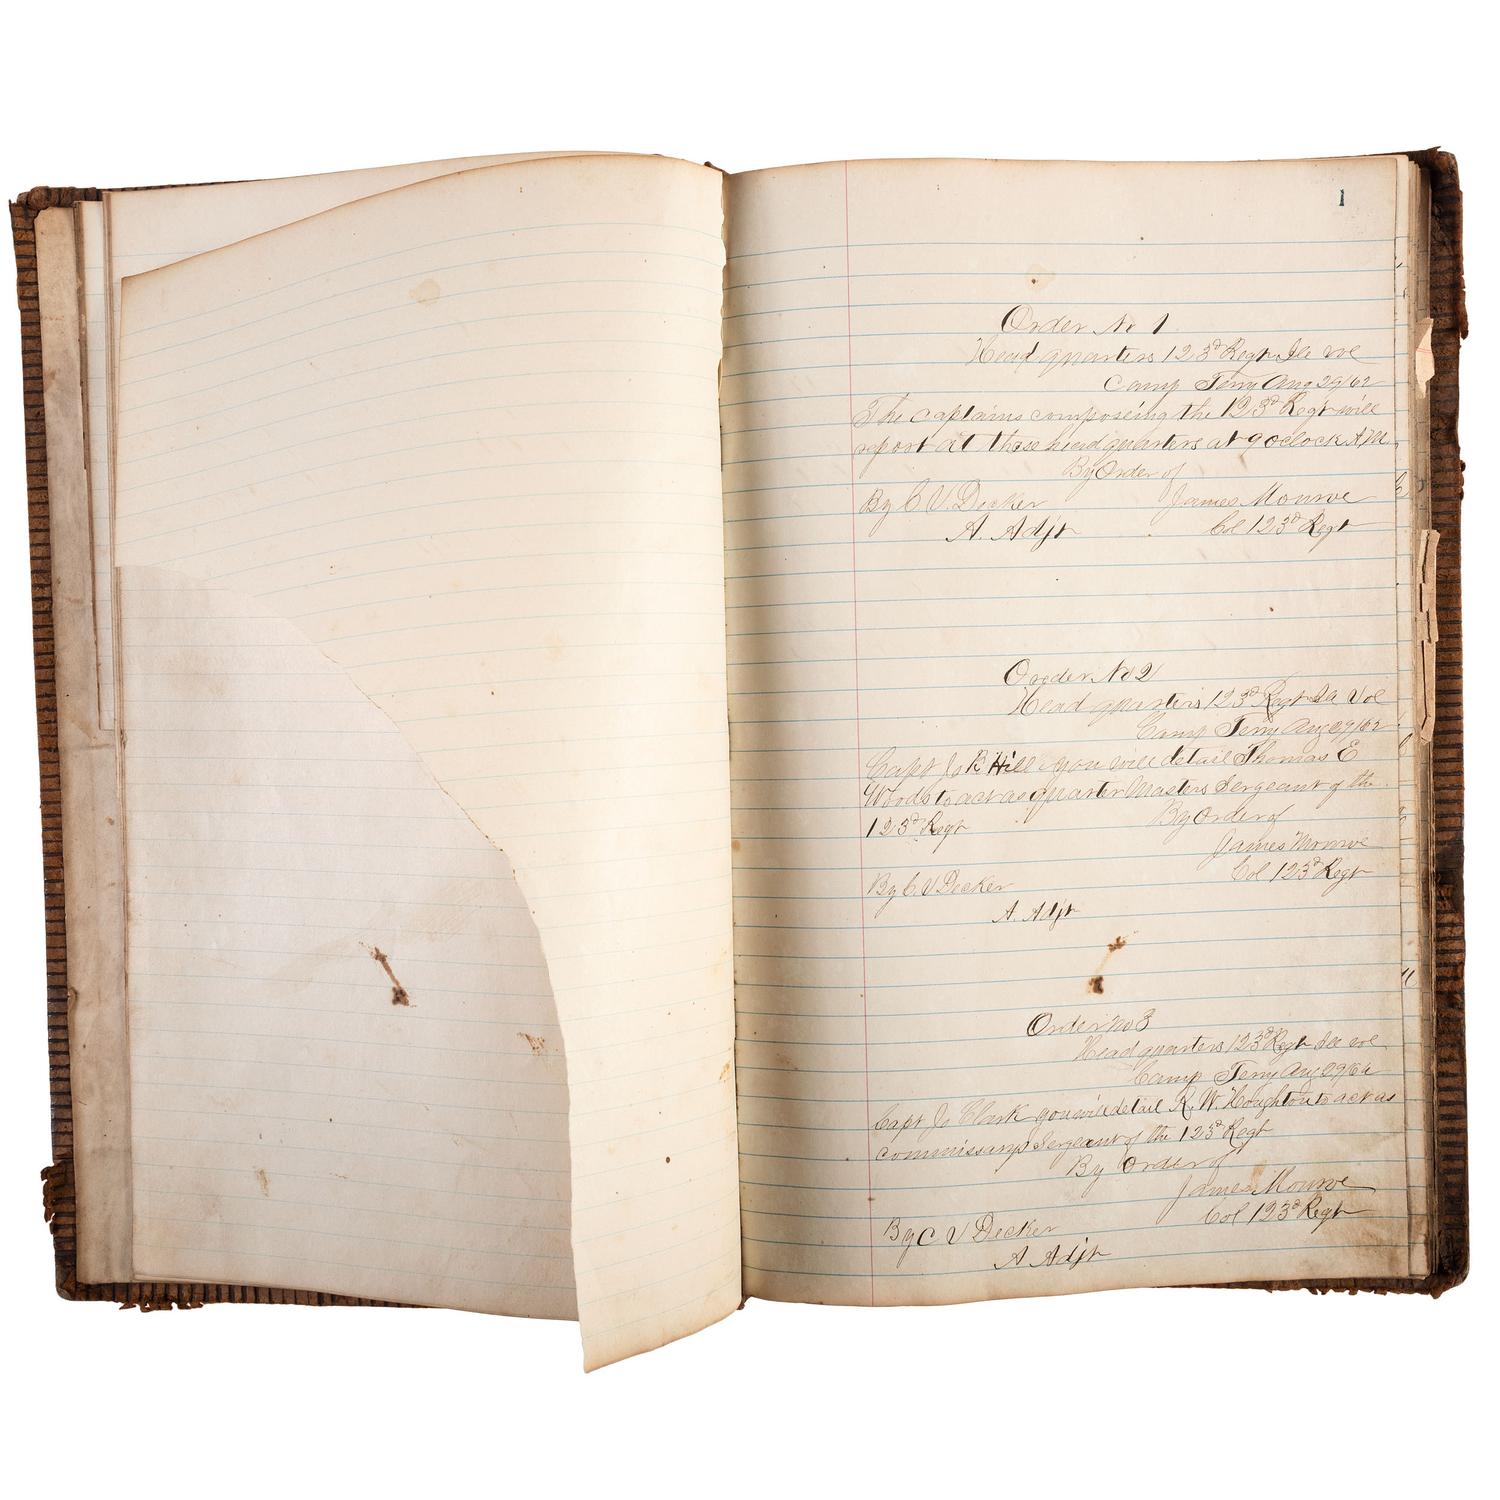 1
Order No 1
Head quarters 123d Regt Ills vol
Camp Terry Aug 29/62
The captains composeing the 123d Regt will
report at these head quarters at 9 oclock A.M.
By Order of
By C V. Decker James Monroe
A. Adjt Col 123d Regt
Oroder No 2
Head quarters 123d Regt Ills Vol
Camp Terry Aug 29/62
Capt R Hill you will detail Thomas E
Woods to act as quarter Masters Sergeant of the
123d Regt By Order of
James Monroe
Col 123d Regt
By C V Decker
A. Adjt
Order No 3
Head quarters 123d Regt Ills vol
Camp Terry Aug 29/62
Capt Clark you will detail R. W. Houghton to act as
commissary Sergeant of the 123d Regt
By Order of
James Monroe
Col 123d Regt
By C V Decker
A Adjt